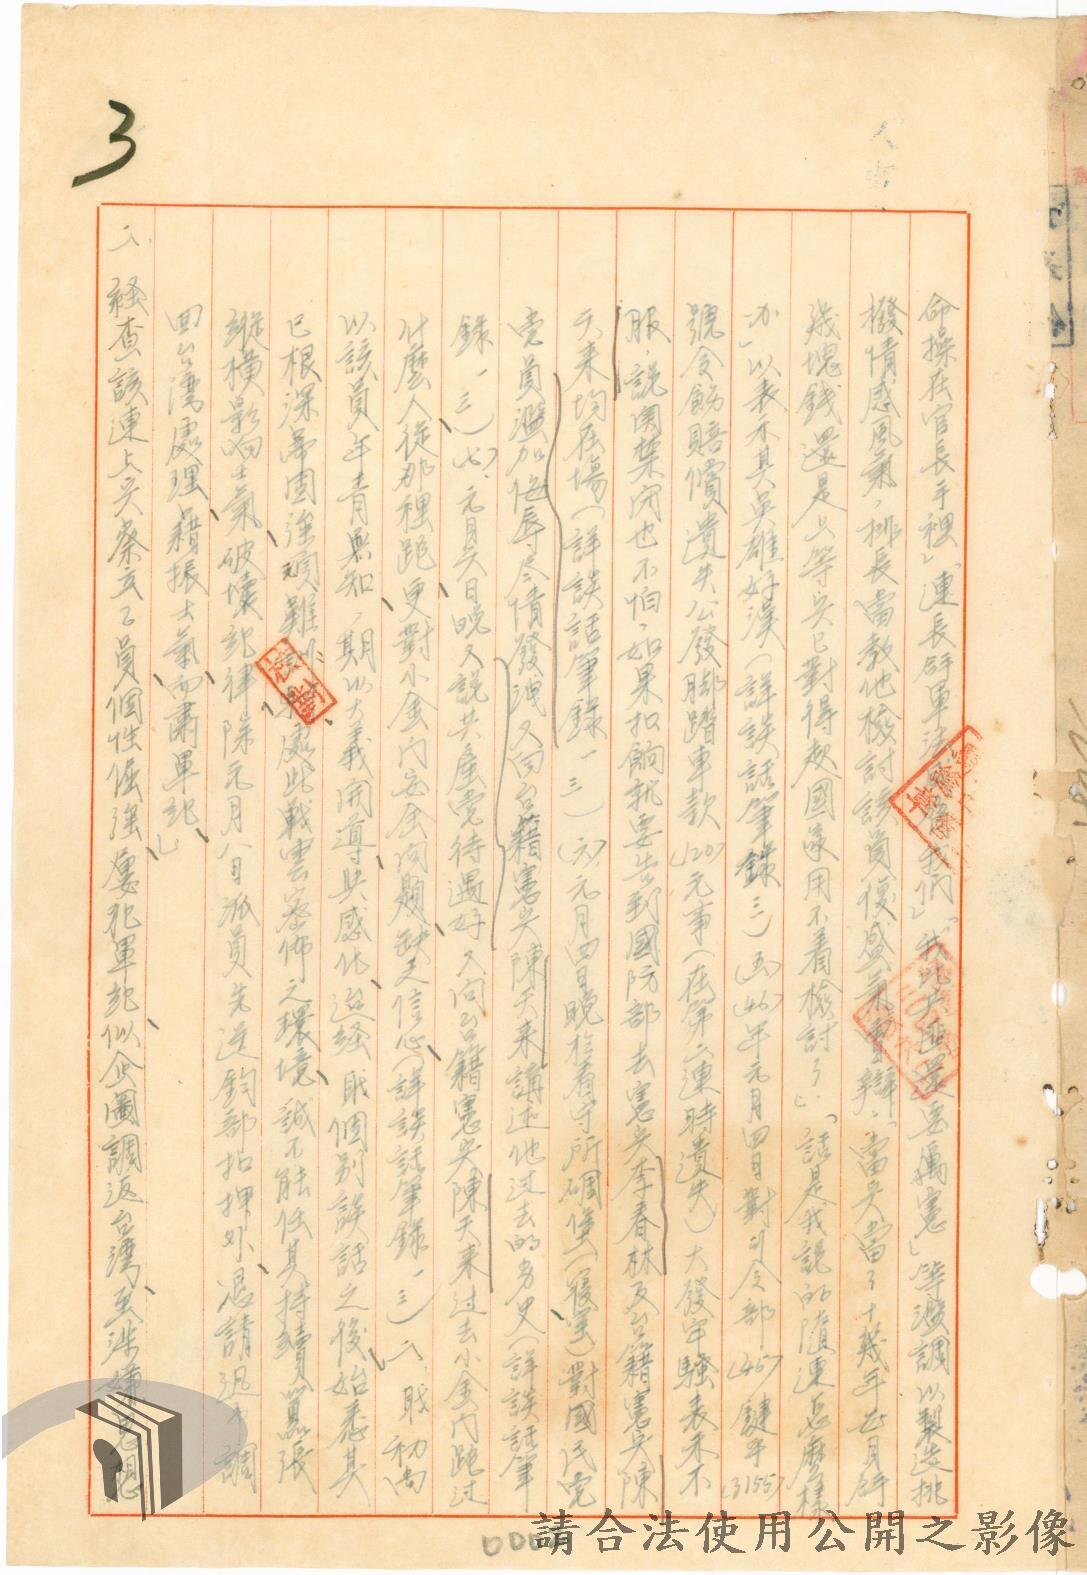 3
命操在官長手裡」「連長辭軍法 我們」「我此 區還要萬憲」等濫調以製造挑
撥情感風氣,排長當教他檢討該員復盛氣 辯,「當兵當了十幾年每月 
幾塊錢還是上等兵已對得起國家用不着檢討了。」「話是我說的隨連怎麼樣
办」以表示其英雄好漢(詳談話筆錄三)(五)(46)年元月四日對司令部(45)健平(3155)
號令飭賠償遺失公發脚踏車款(120)元事(在第六連時遺失)大發牢騷表示不
服,說関禁閉也不怕,如果扣餉就要告到國防部去憲兵李春林及台籍憲兵陳
天來均在場(詳談話筆錄一、三)(六)元月四日晚於看守所碉堡(寢室)對國民党
党員濫加侮辱尽情發洩又向台籍憲兵陳天來講述他过去的 史(詳談話筆
錄一、三)(七)、元月六日晚又說共產党待遇好又向台籍憲兵陳天來过去小金门跑过
什麼人從那裡跑、更對小金门安全问題缺乏信心(詳談話筆錄一、三)八、職初尚
以該員年青無知,期以大義開導與感化迨經職個別談話之後始悉其
已根深蒂固強頑難 處此戰雲密佈之環境誠不能任其持續囂張
縱橫影响士氣破壞紀律除元月八日派員先送鈞部扣押外、恳請迅予調
回台湾處理藉振士氣而肅軍紀。」
八、經查該連上兵蔡玄乙員個性倔強屢犯軍紀似企圖調返台湾至涉嫌思想
請合法使用公開之影像